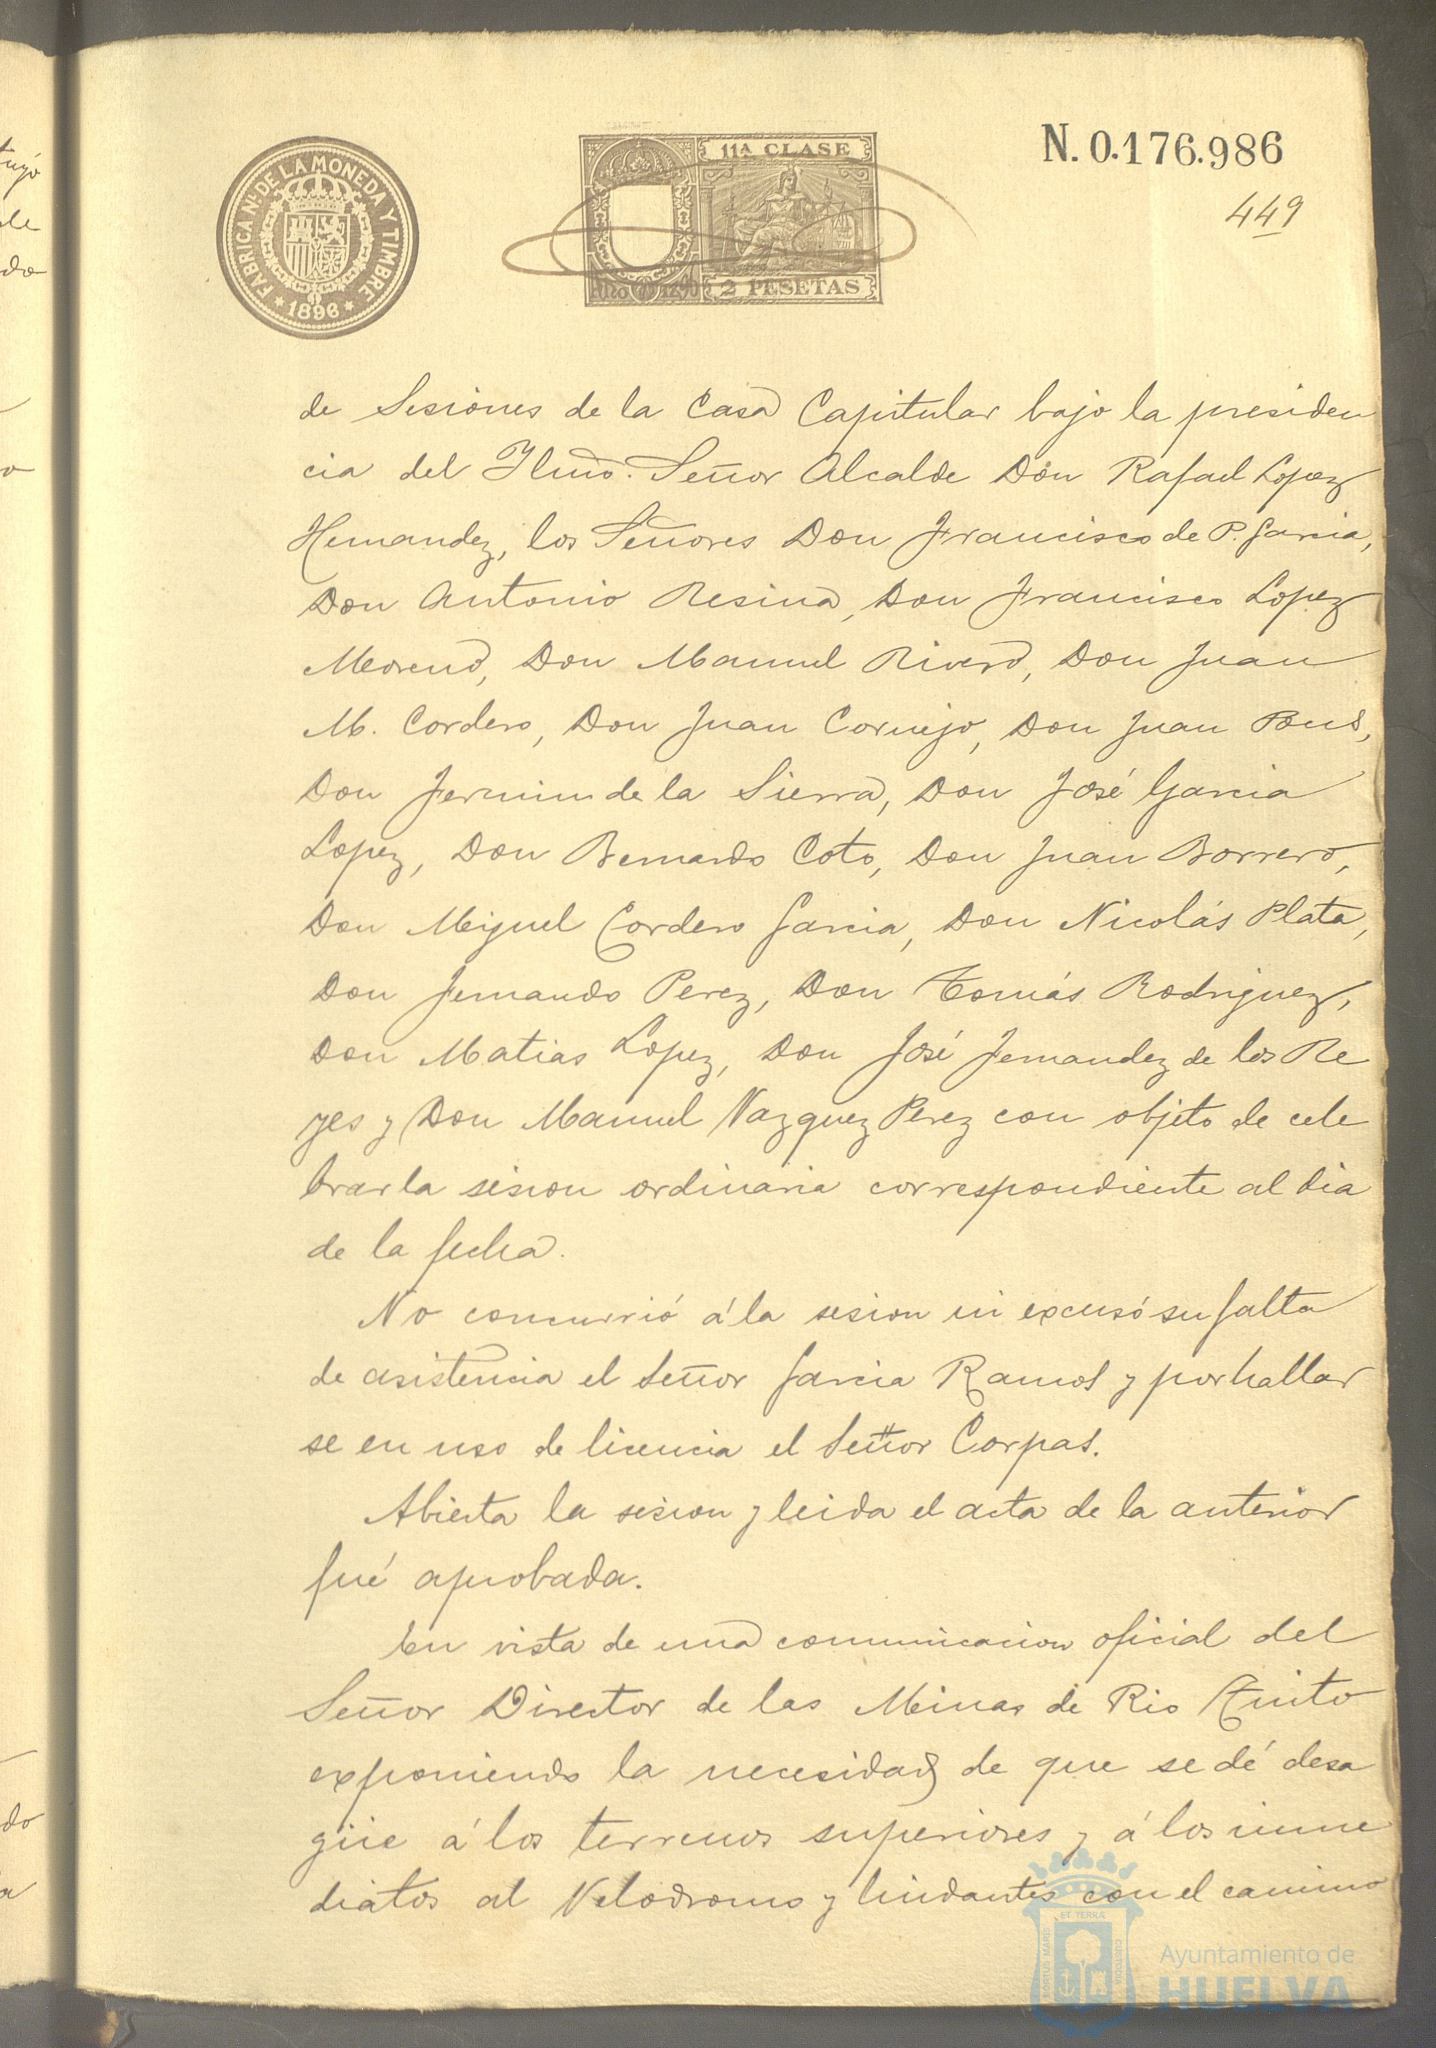 FABRICA Nᴸ. DE LA MONEDA Y TIMBRE
* 1896 *
11ª CLASE
2 PESETAS
N. 0.176.986
449
de Sesiones de la Casa Capitular bajo la presiden
cia del Ylmo. Señor Alcalde Don Rafael Lopez
Hernandez, los Señores Don Francisco de P. Garcia,
Don Antonio Resina, Don Francisco Lopez
Moreno, Don Manuel Rivero, Don Juan
M. Cordero, Don Juan Cornejo, Don Juan Pons,
Don Fermin de la Sierra, Don José Garcia
Lopez, Don Bernardo Coto, Don Juan Borrero,
Don Miguel Cordero Garcia, Don Nicolás Plata,
Don Fernando Perez, Don Tomás Rodriguez,
Don Matias Lopez, Don José Fernandez de los Re
yes y Don Manuel Vazquez Perez con objeto de cele
brar la sesion ordinaria correspondiente al dia
de la fecha.
No concurrió á la sesion ni excusó su falta
de asistencia el Señor Garcia Ramos y por hallar
se en uso de licencia el Señor Corpas.
Abierta la sesion y leida el acta de la anterior
fué aprobada.
En vista de una comunicacion oficial del
Señor Director de las Minas de Rio Tinto
exponiendo la necesidad de que se dé desa
güe á los terrenos superiores y á los inme
diatos al Velodromo y lindantes con el camino
Ayuntamiento de
HUELVA